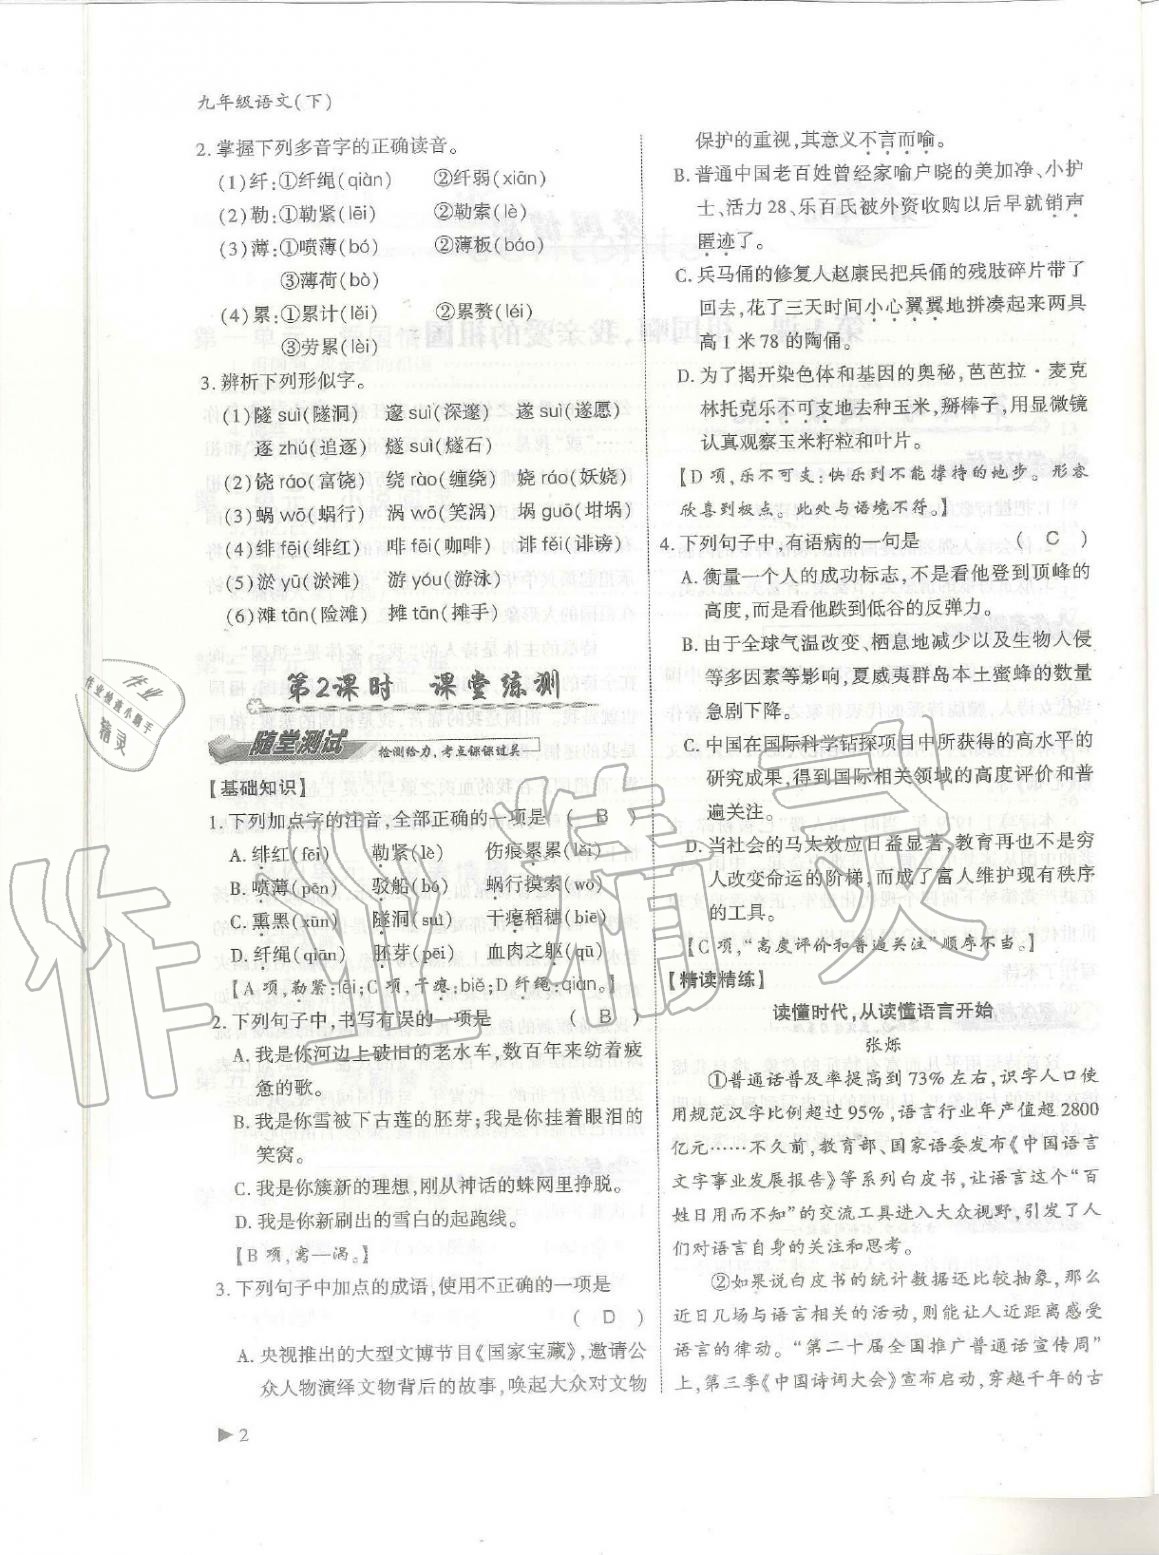 九年级语文(下)
2. 掌握下列多音字的正确读音。
(1)纤:①纤绳(qiàn) ②纤弱(xiān)
(2)勒:①勒紧(lēi) ②勒索(lè)
(3)薄:①喷薄(bó) ②薄板(báo)
③薄荷(bò)
(4)累:①累计(lěi) ②累赘(léi)
③劳累(lèi)
3. 辨析下列形似字。
(1)隧 suì(隧洞) 邃 suì(深邃) 遂 suì(遂愿)
逐 zhú(追逐) 燧 suì(燧石)
(2)饶 ráo(富饶) 绕 rào(缠绕) 娆 ráo(妖娆)
(3)蜗 wō(蜗行) 涡 wō(笑涡) 埚 guō(坩埚)
(4)绯 fēi(绯红) 啡 fēi(咖啡) 诽 fěi(诽谤)
(5)淤 yū(淤滩) 游 yóu(游泳)
(6)滩 tān(险滩) 摊 tān(摊手)
第2课时 课堂练测
随堂测试 检测给力,考点课课过关
【基础知识】
1. 下列加点字的注音,全部正确的一项是 ( B )
A. 绯红(fēi) 勒紧(lè) 伤痕累累(lěi)
B. 喷薄(pēn) 驳船(bó) 蜗行摸索(wō)
C. 熏黑(xūn) 隧洞(suì) 干瘪稻穗(biē)
D. 纤绳(qiān) 胚芽(pēi) 血肉之躯(qū)
【A 项,勒紧:lēi;C 项,干瘪:biě;D 纤绳:qiàn。】
2. 下列句子中,书写有误的一项是 ( B )
A. 我是你河边上破旧的老水车,数百年来纺着疲
惫的歌。
B. 我是你雪被下古莲的胚芽;我是你挂着眼泪的
笑窝。
C. 我是你簇新的理想,刚从神话的蛛网里挣脱。
D. 我是你新刷出的雪白的起跑线。
【B 项,窝—涡。】
3. 下列句子中加点的成语,使用不正确的一项是
( D )
A. 央视推出的大型文博节目《国家宝藏》,邀请公
众人物演绎文物背后的故事,唤起大众对文物
2
保护的重视,其意义不言而喻。
B. 普通中国老百姓曾经家喻户晓的美加净、小护
士、活力 28、乐百氏被外资收购以后早就销声
匿迹了。
C. 兵马俑的修复人赵康民把兵俑的残肢碎片带了
回去,花了三天时间小心翼翼地拼凑起来两具
高 1 米 78 的陶俑。
D. 为了揭开染色体和基因的奥秘,芭芭拉·麦克
林托克乐不可支地去种玉米,掰棒子,用显微镜
认真观察玉米籽粒和叶片。
【D 项,乐不可支:快乐到不能撑持的地步。形容
欣喜到极点。此处与语境不符。】
4. 下列句子中,有语病的一句是 ( C )
A. 衡量一个人的成功标志,不是看他登到顶峰的
高度,而是看他跌到低谷的反弹力。
B. 由于全球气温改变、栖息地减少以及生物入侵
等多因素等影响,夏威夷群岛本土蜜蜂的数量
急剧下降。
C. 中国在国际科学钻探项目中所获得的高水平的
研究成果,得到国际相关领域的高度评价和普
遍关注。
D. 当社会的马太效应日益显著,教育再也不是穷
人改变命运的阶梯,而成了富人维护现有秩序
的工具。
【C 项,“高度评价和普遍关注”顺序不当。】
【精读精练】
读懂时代,从读懂语言开始
张烁
①普通话普及率提高到 73% 左右,识字人口使
用规范汉字比例超过 95%,语言行业年产值超 2800
亿元……不久前,教育部、国家语委发布《中国语言
文字事业发展报告》等系列白皮书,让语言这个“百
姓日用而不知”的交流工具进入大众视野,引发了人
们对语言自身的关注和思考。
②如果说白皮书的统计数据还比较抽象,那么
近日几场与语言相关的活动,则能让人近距离感受
语言的律动。“第二十届全国推广普通话宣传周”
上,第三季《中国诗词大会》宣布启动,穿越千年的古
作业精灵
作业
作业检查小助手
精灵